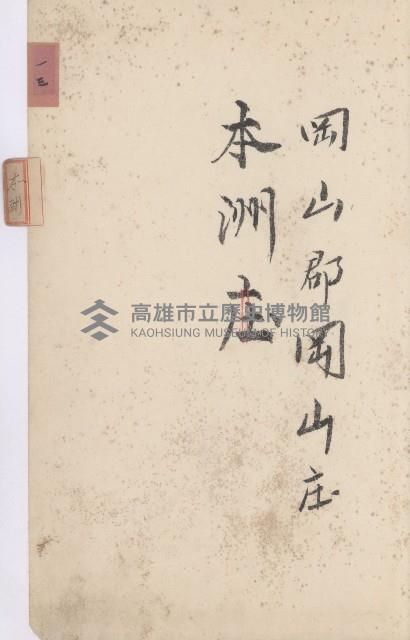 岡山郡岡山庄
本洲庄
一三
本洲
高雄市立歷史博物館
KAOHSIUNG MUSEUM OF HISTORY